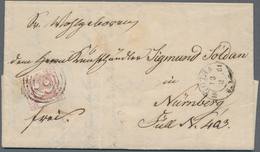 Sr. Wohlgeboren
dem Herrn Kunsthändler Sigmund Soldan
in
Nürnberg
frei.